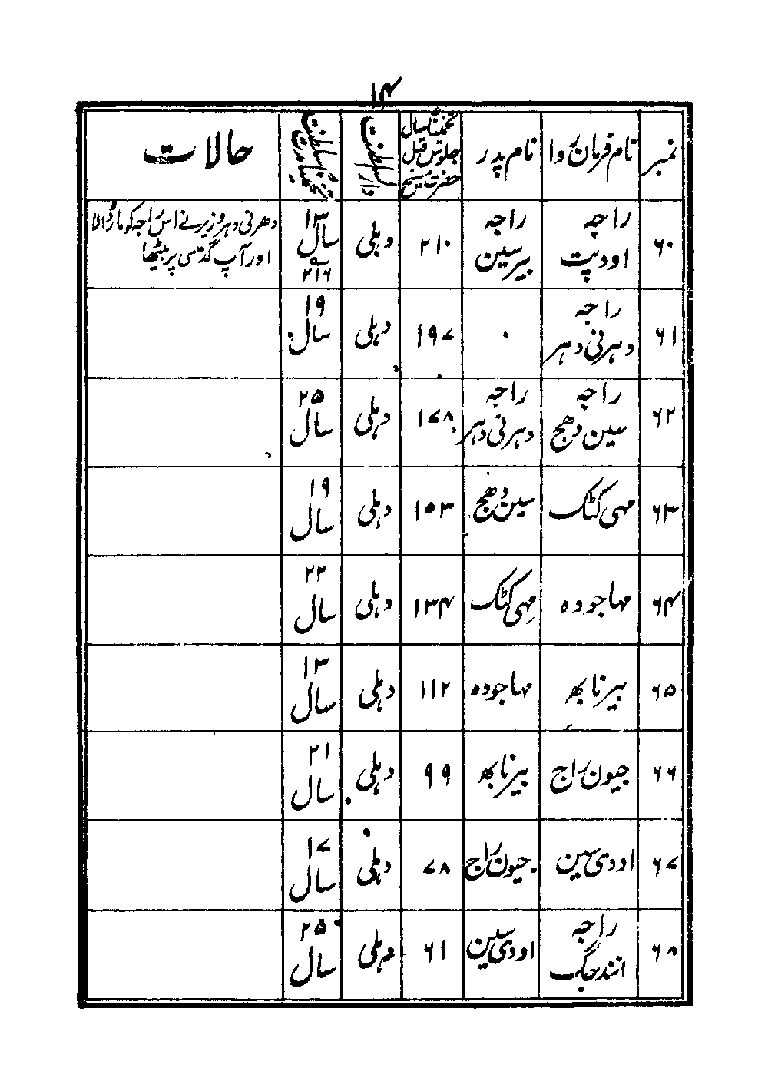 ۱۴
نمبر | نام فرمان روا | نام پدر | تخمیناً سال جلوس قبل حضرت مسیح | دارالسلطنت | سلطنت | حالات
۶۰ | راجہ اودپت | راجہ بیرسین | ۲۱۰ | دہلی | ۱۳ سال ۲۱۶ | دھرنی دہر وزیر نے اس راجہ کو مارڈالا اور آپ گدّی پر بیٹھا
۶۱ | راجہ دہرنی دہر | ۰ | ۱۹۷ | دہلی | ۱۹ سال
۶۲ | راجہ سین دھج | راجہ دہرنی دہر | ۱۷۸ | دہلی | ۲۵ سال
۶۳ | مہی کٹک | سین دھج | ۱۵۳ | دہلی | ۱۹ سال
۶۴ | مہاجودہ | مہی کٹک | ۱۳۴ | دہلی | ۲۲ سال
۶۵ | بیرنابھ | مہاجودہ | ۱۱۲ | دہلی | ۱۳ سال
۶۶ | جیون راج | بیرنابھ | ۹۹ | دہلی | ۲۱ سال
۶۷ | اودی سین | جیون راج | ۷۸ | دہلی | ۱۷ سال
۶۸ | راجہ انندجگ | اودی سین | ۶۱ | دہلی | ۲۵ سال